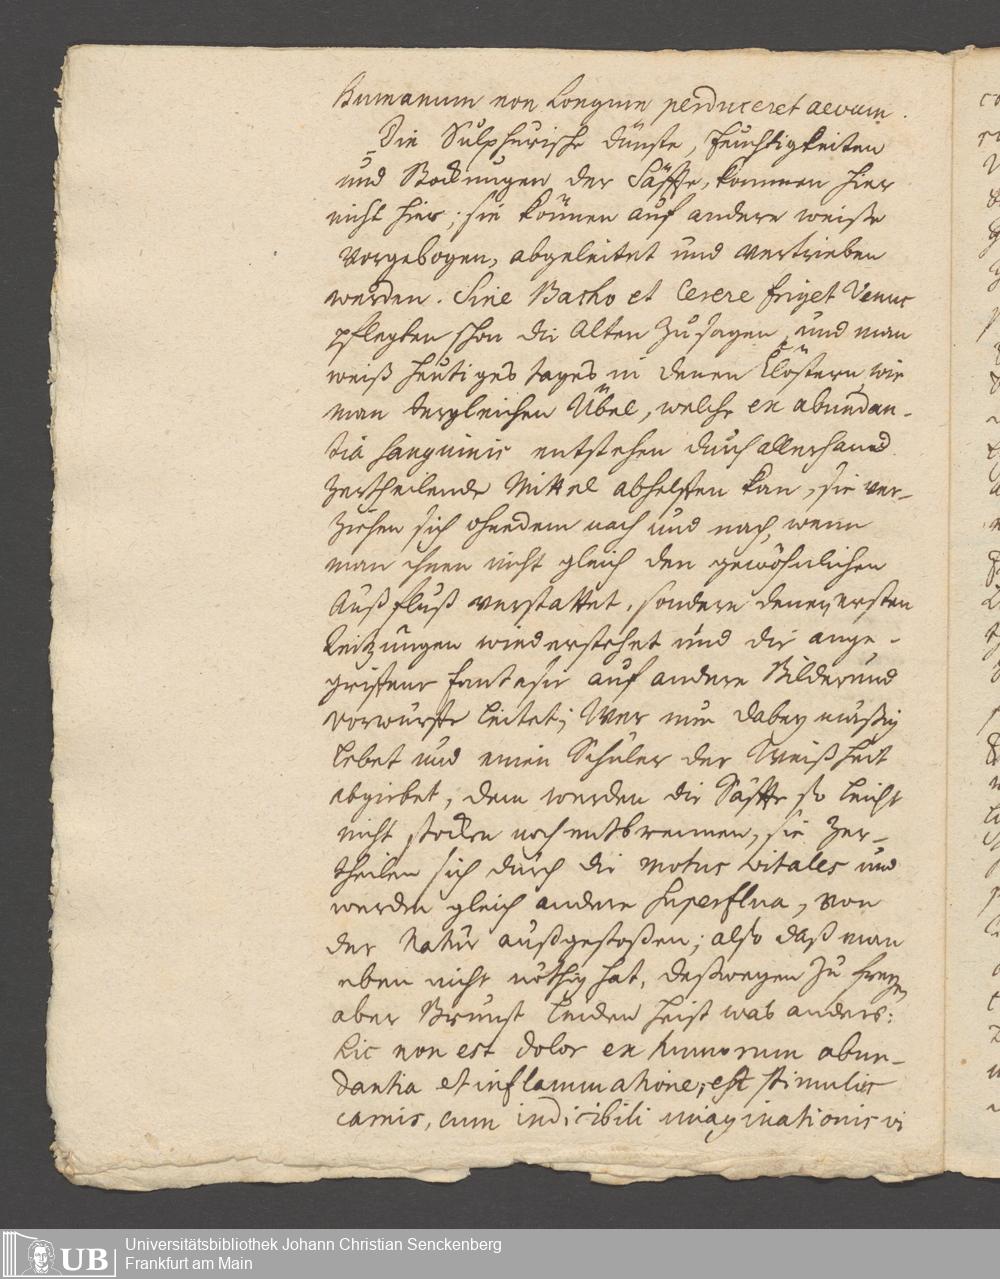 humanum non longum perduceret aevum.
Die Sulphurische dünste, feuchtigkeiten
und Stockungen der Säffte, kommen hier
nicht hier; sie können auf andere weiße
vorgebogen, abgeleitet und vertrieben
werden. Sine Bacho et Cerere friget Venus
pflegten schon die Alten zu sagen, und man
weiß heutiges tages in denen Clöstern, wie
man dergleichen Übel, welche ex abundan-
tia sanguinis entstehen durch allerhand
zertheilende Mittel abhelffen kan, sie ver-
ziehen sich ohnedem nach und nach, wenn
man ihnen nicht gleich den gewöhnlichen
Außfluß verstattet, sondern denen ersten
Reitzungen wiederstehet und die ange-
griffene fantasie auf andere Bilder und
vorwürffe leitet; Wer nun dabey mäßig
lebet und einen Schüler der Weißheit
abgiebet, dem werden die Säffte so leicht
nicht stocken noch entbrennen, sie zer-
theilen sich durch die motus vitales und
werden gleich andere superflua, von
der Natur außgestoßen; also daß man
eben nicht nöthig hat, deßwegen zu freyen
aber Brunst leiden heist was anders:
hic non est dolor ex humorum abun-
dantia et inflammatione, est stimulus
carnis, cum indicibili imaginationis vi
UB
Universitätsbibliothek Johann Christian Senckenberg
Frankfurt am Main